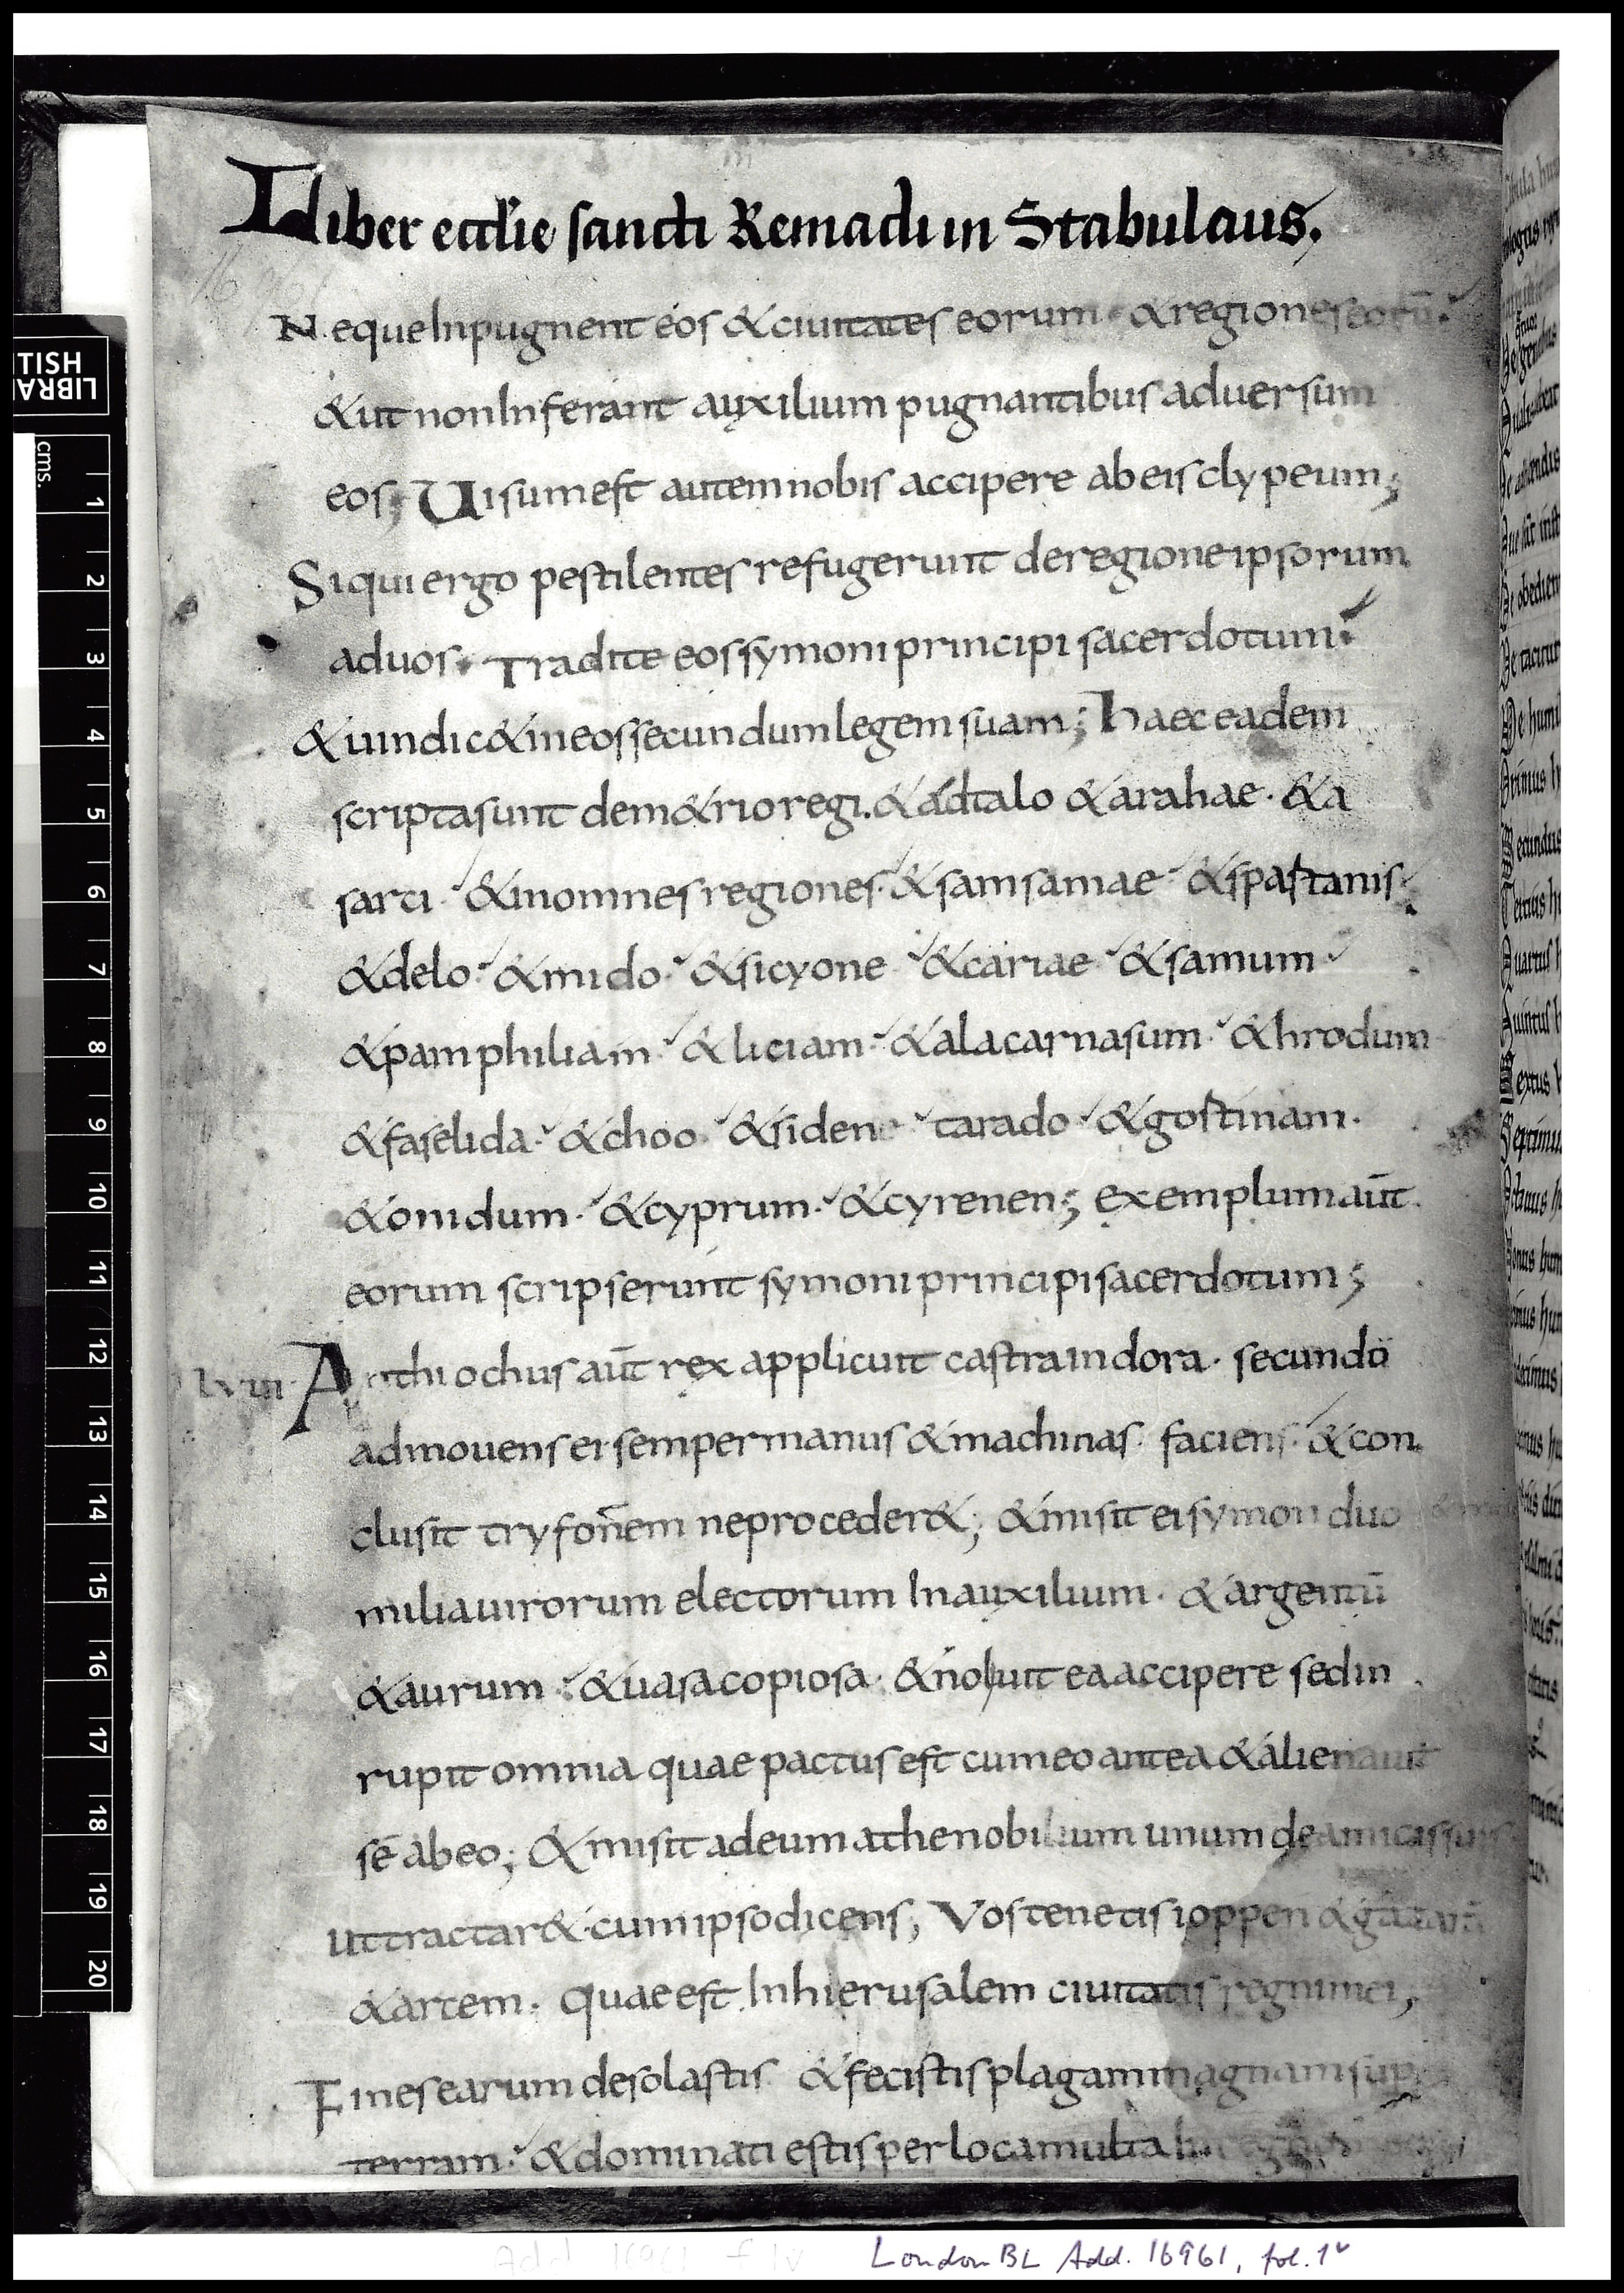 Liber eccl'ie sancti Remacli in Stabulaus.
Neque Inpugnent eos & ciuitates eorum · & regiones eorū.
& ut non Inferant auxilium pugnantibus aduersum
eos; Uisum est autem nobis accipere ab eis clypeum;
Siqui ergo pestilentes refugerunt de regione ipsorum
ad uos · Tradite eos symoni principi sacerdotum·
& uindic& in eos secundum legem suam; haec eadem
scripta sunt dem&rio regi. & adtalo & arahae · & a
sarti · & in omnes regiones · & samsamae · & spartanis·
& delo · & mido · & sicyone · & cariae · & samum ·
& pamphiliam · & liciam · & alacarnasum · & hrodum
& faselida · & choo · & siden · tarado · & gostinam ·
& onidum · & cyprum · & cyrenen; exemplum aūt
eorum scripserunt symoni principi sacerdotum;
LVIII · Anthiochus aūt rex applicuit castra in dora · secundū
admouens ei semper manus & machinas · faciens · & con
clusit tryfonem ne proceder&; & misit ei symon duo
milia uirorum electorum In auxilium · & argentū
& aurum · & uasa copiosa · & noluit ea accipere sed in
rupit omnia quae pactus est cum eo antea & alienauit
se ab eo; & misit ad eum athenobium unum de amicis suis
ut tractar& cum ipso dicens; Vos tenetis ioppen & gazarā
& arcem · quae est In hierusalem ciuitatis regni mei;
Fines earum desolastis · & fecistis plagam magnam sup
terram · & dominati estis per loca multa In
British
Library
cms.
1
2
3
4
5
6
7
8
9
10
11
12
13
14
15
16
17
18
19
20
Add 16961 f 1v
London BL Add. 16961, fol. 1v